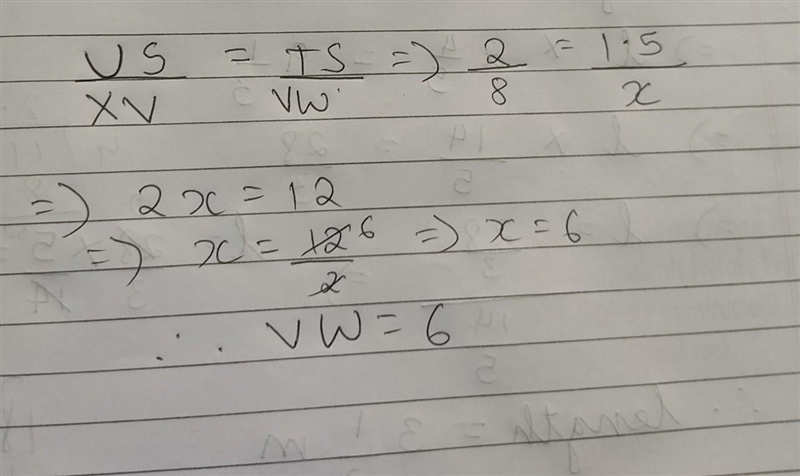 US/XV = TS/VW => 2/8 = 1.5/x
=> 2x = 12
=> x = 12/2 6 => x = 6
∴ VW = 6